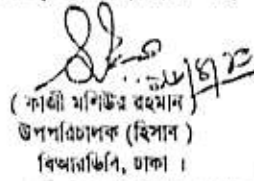 ( কাজী মশিউর রহমান )
উপপরিচালক (হিসাব )
বিআরডিবি, ঢাকা ।